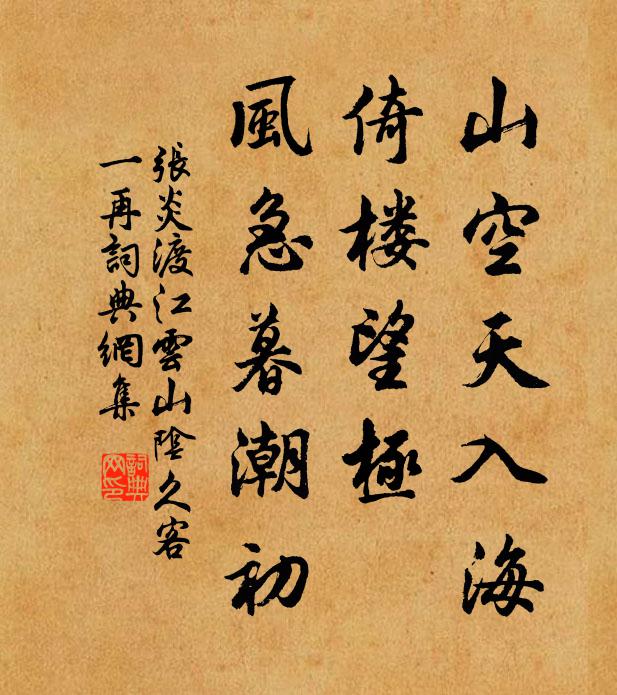 山空天入海
倚楼望極
風急暮潮初
張炎渡江雲山陰久客
一再詞典網集
詞典
网印